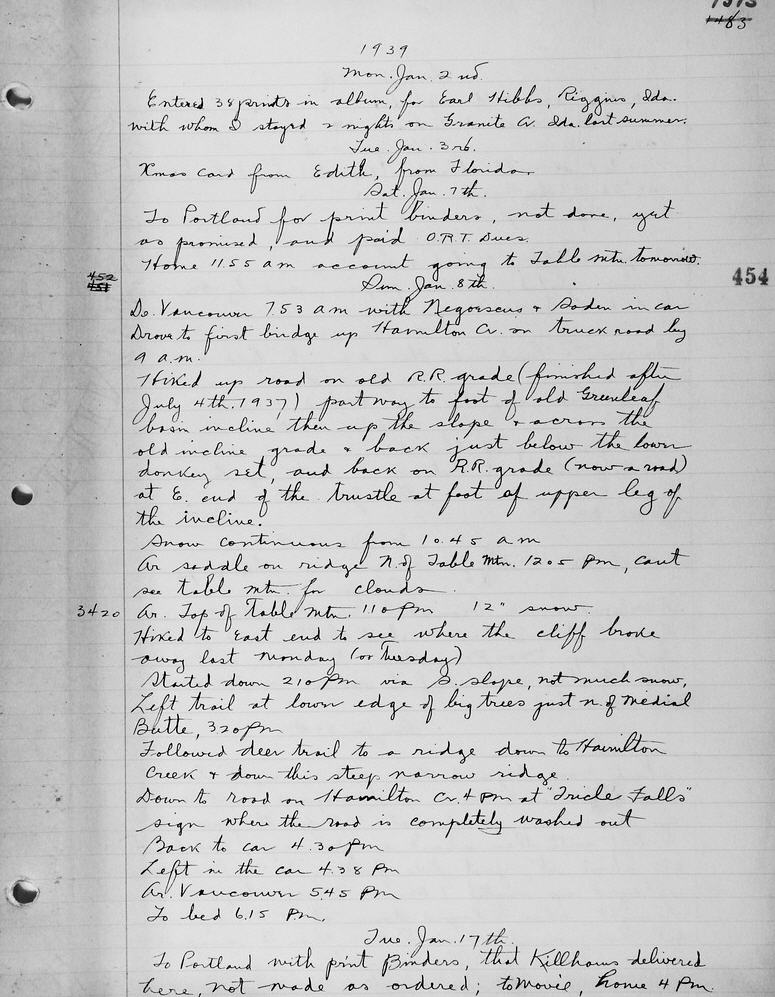 1483
1939
Mon. Jan. 2nd.
Entered 38 prints in album, for Earl Hibbs, Riggins, Ida.
with whom I stayed 2 nights on Granite Cr. Ida. last summer.
Tue. Jan. 3rd.
Xmas card from Edith, from Florida.
Sat. Jan. 7th.
To Portland for print binders, not done, yet
as promised, and paid O.R.T. Dues.
Home 11.55 am account going to Table Mtn. tomorrow.
452
451
454
Sun. Jan. 8th.
Lv. Vancouver 7.53 am with Negoescus & Soden in car
Drove to first bridge up Hamilton Cr. on truck road by
9 a.m.
Hiked up road on old R.R. grade (finished after
July 4th. 1937) part way to foot of old Greenleaf
basin incline then up the slope & across the
old incline grade & back just below the lower
donkey set, and back on R.R. grade (now a road)
at E. end of the trustle at foot of upper leg of
the incline.
Snow continuous from 10.45 am
Ar saddle on ridge N. of Table Mtn. 12 05 pm, cant
see table mtn. for clouds.
3420 Ar. Top of Table Mtn. 1 10 pm 12" snow.
Hiked to East end to see where the cliff broke
away last Monday (or Tuesday)
Started down 2 10 pm via S. slope, not much snow,
Left trail at lower edge of big trees just n. of Medial
Butte, 3 20 pm
Followed deer trail to a ridge down to Hamilton
Creek & down this steep narrow ridge.
Down to road on Hamilton Cr. 4 pm at "Tricle Falls"
sign where the road is completely washed out
Back to car 4.30 pm
Left in the car 4.38 Pm
Ar. Vancouver 5.45 Pm
To bed 6.15 P.m.
Tue. Jan. 17th.
To Portland with print Binders, that Killhams delivered
here, not made as ordered; to movie, home 4 Pm.